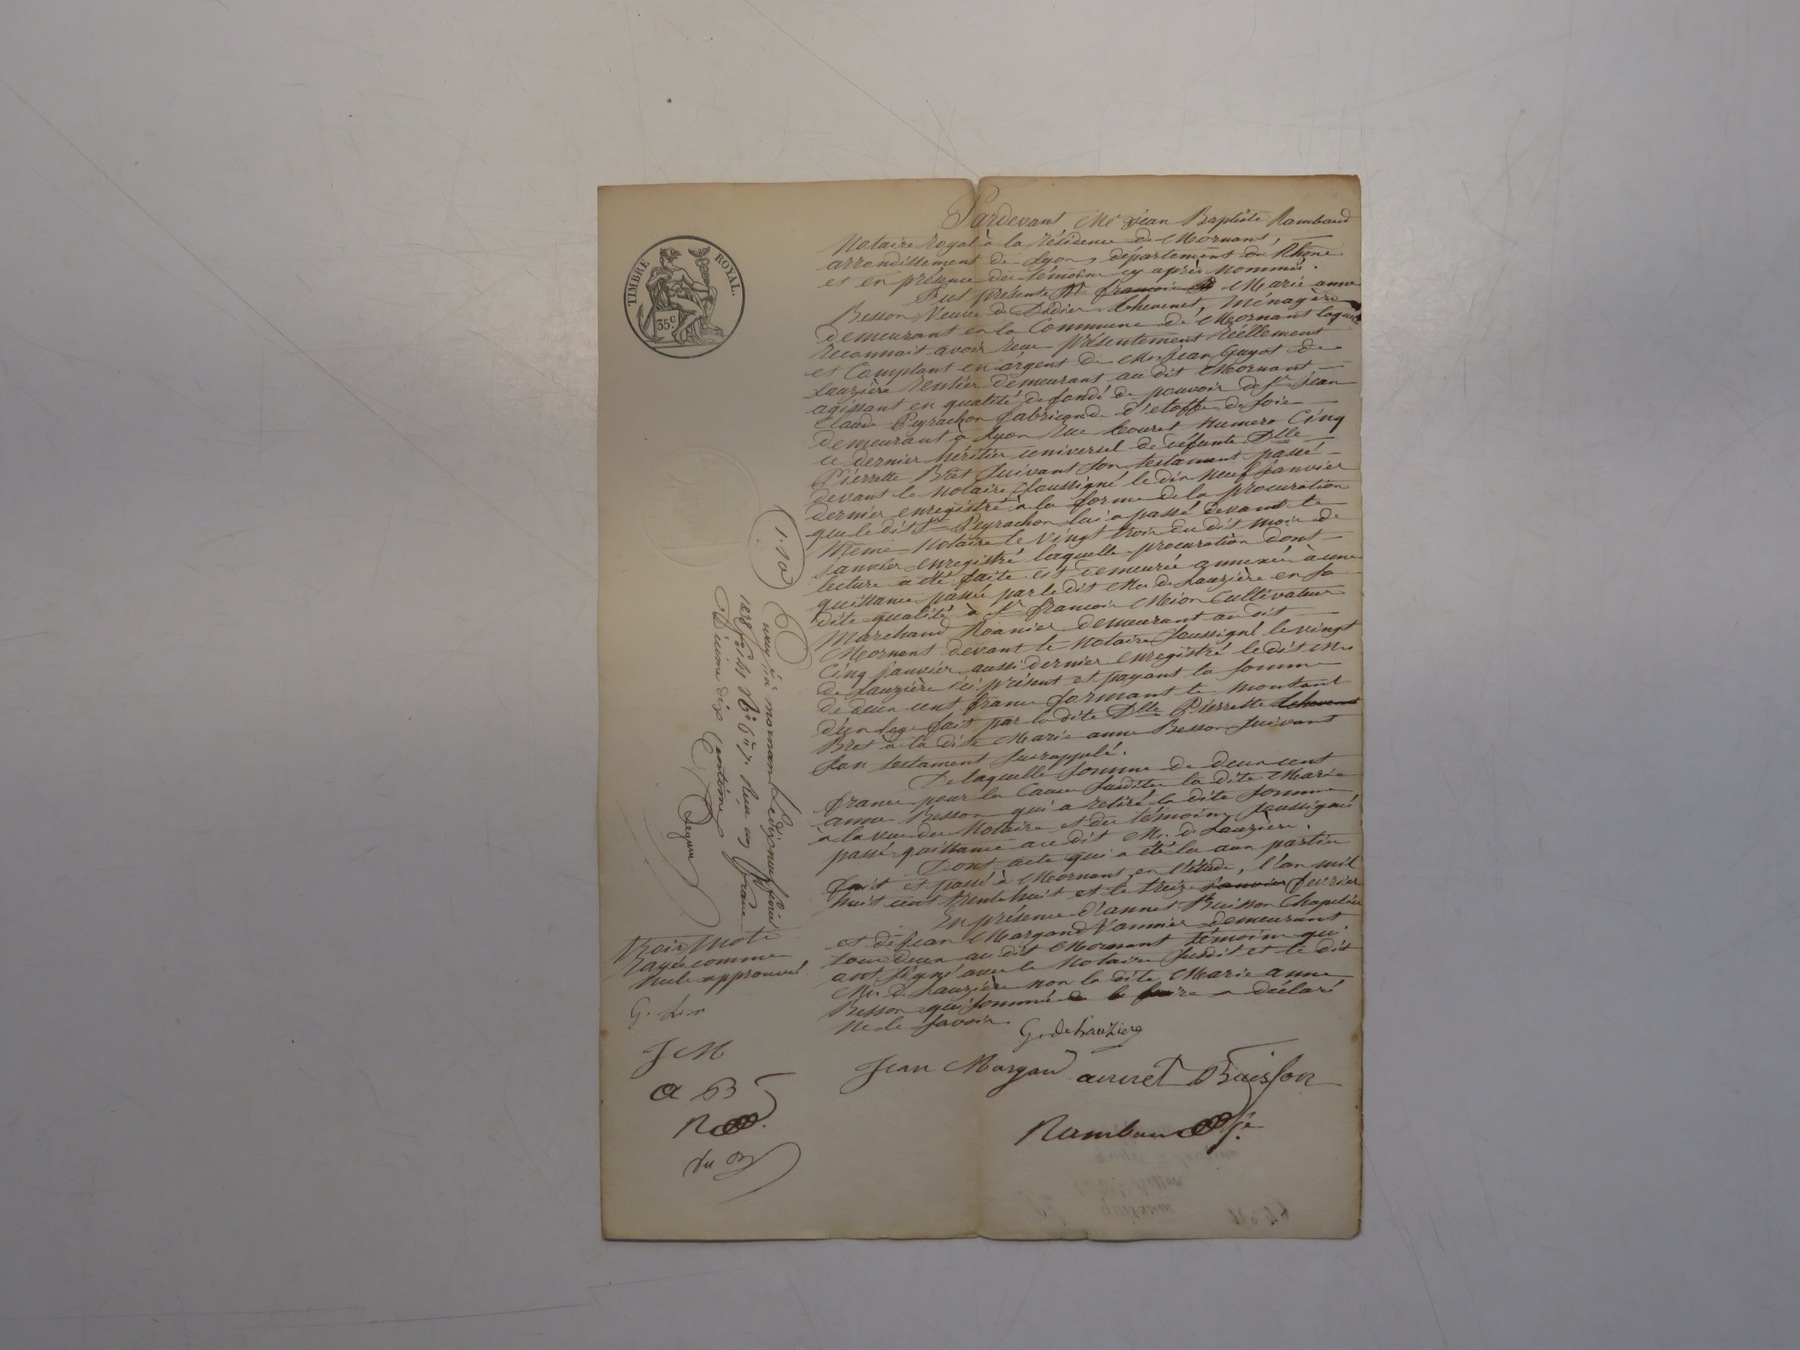 TIMBRE ROYAL.
35c
Pardevant Me Jean Baptiste Rambaud
Notaire Royal à la résidence de Mornant,
arrondissement de Lyon, département du Rhône
et en présence des témoins cy après nommés.
fut présente Marie anne
Besson Veuve de Didier Thevenet, Ménagère
demeurant en la Commune de Mornant laquelle
reconnait avoir reçu présentement réellement
et Comptant en argent de Mr Jean Guyot de
Lauzière rentier demeurant au dit Mornant,
agissant en qualité de fondé de pouvoir de Sr Jean
Claude Peyrachon fabricand d'étoffe de soie
demeurant à Lyon Rue Couret Numero Cinq
ce dernier héritier universel de défunte Dlle
Pierrette Bret suivant son testament passé
devant le Notaire soussigné le dix neuf janvier
dernier enregistré à la forme de la procuration
que le dit Sr Peyrachon lui a passé devant le
même Notaire le vingt trois du dit mois de
janvier enregistré laquelle procuration dont
lecture a été faite est demeurée annexée à une
quittance passée par le dit Mr de Lauzière en sa
dite qualité à Sr François Mion Cultivateur
Marchand demeurant au dit
Mornant devant le Notaire soussigné le vingt
Cinq janvier aussi dernier enregistré le dit Mr
de Lauzière ici présent et payant la somme
de deux cent francs formant le montant
d'un legs fait par la dite Dlle Pierrette
Bret à la dite Marie anne Besson suivant
son testament susrappelé.
De laquelle somme de deux cent
francs pour la Cause susdite la dite Marie
anne Besson qui a retiré la dite somme
à la vue du Notaire et des témoins soussignés
passe quittance au dit Mr. de Lauzière.
Dont acte qui a été lu aux parties
fait et passé à Mornant en l'étude, l'an mil
huit cent trente huit et le treize janvier février
En présence d'annet Buisson Chapelier
et de Jean Margand Vannier demeurant
tous deux au dit Mornant témoins qui
ont signé avec le Notaire susdit et le dit
Mr. de Lauzière non la dite Marie anne
Besson qui sommée de le faire a déclaré
ne le savoir.
G. de Lauziere
Jean Margan annet Buisson
Rambaud
1.10
à mornant le dix neuf février
1838 reçu un franc
Décime dix centimes
mots
Rayés comme
nuls approuvé
G. L
J M
a B
R